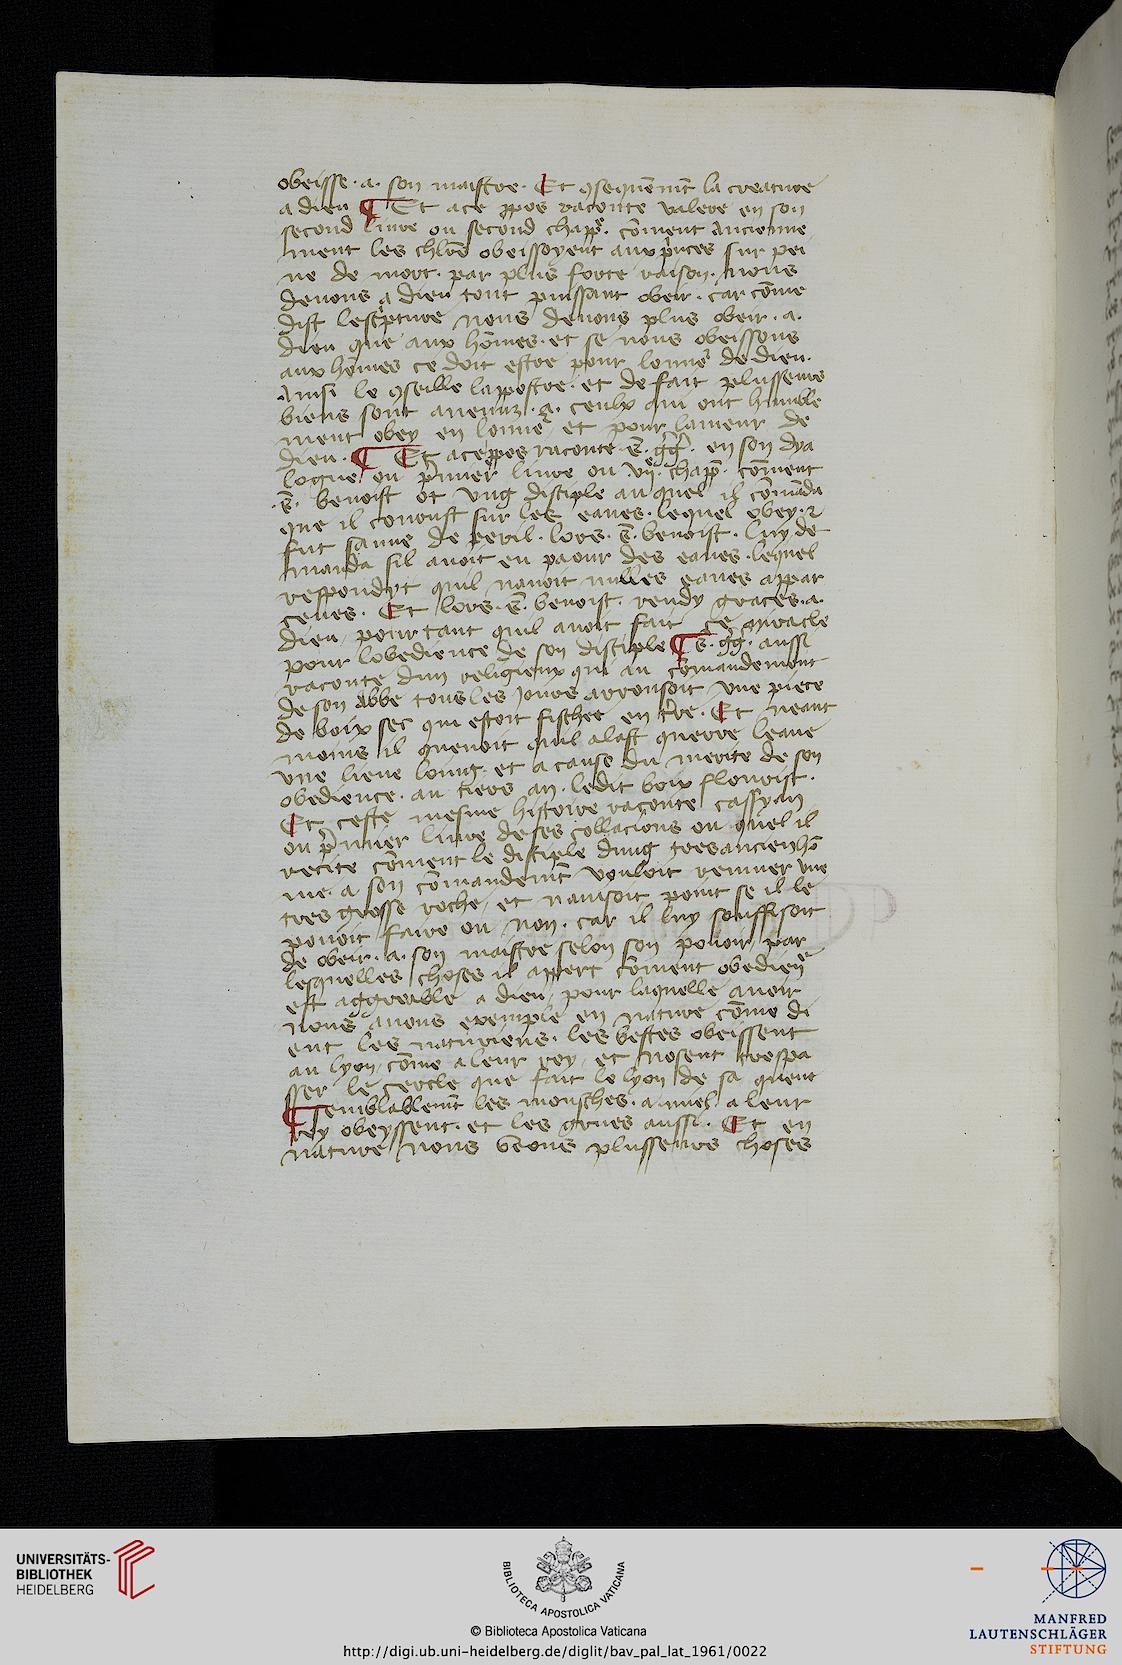 obeisse · a · son maistre · Et ꝯsequēmt̄ la creature
a dieu ¶ Et ace ꝓpos raconte valere en son
second liure ou second chapp̄e · cōment Ancienne
ment les chlr̄s obeissoyent aux pͥnces sur pei
ne de mort · par plus forte raison · nous
deuons a dieu tout puissant obeir · car cōme
dist lescͥpture nous deuons plus obeir · a ·
dieu que aux hōmes · et se nous obeissons
aux hōmes ce doit estre pour lonneᷣ de dieu ·
Ainsi le ꝯseille lappostre · et de fait plusseurs
biens sont auenuz · a · ceulx qui ont humble
ment obey en lonneᷣ et pour lameur de
dieu · ¶ Et aceppos raconte · s̄ · gḡ · en son dya
logue ou pͥmier liure ou vijͤ · chapp̄ · cōment
· s̄ · benoist ot vng disciple au quel il cōmāda
que il courust sur les eaues · lequel obey · ⁊
fut sauue de peril · lors · s̄ · benoist · luy de
manda sil auoit eu paour des eaues · lequel
respondyt quil nauoit nulles eaues appar
ceues · Et lors · s̄ · benoist · rendy graces · a ·
dieu / pour tant quil auoit fait ce miracle
pour lobedience de son disciple ¶ s̄ · gḡ · aussi
raconte dun religieux qui au cōmandement
de son Abbe tous les jours arrousoit vne piece
de boix sec qui estoit fischee en tr̄re · Et neant
moins il ꝯuenoit quil alast querre leaue
vne lieue loing · et a cause du merite de son
obedience · au tiers an · ledit boix flourist ·
Et ceste mesme histoire raconte cassyan
ou pͥmier liure de ses collacions ou quel il
recite cōment le disciple dung tresancien hō
me · a son cōmandemt̄ vouloit remuer vne
tres grosse roche / et nauisoit point se il le
pouoit faire ou non · car il luy souffisoit
de obeir · a · son maistre selon son pouoir / par
lesquelles choses il appert cōment obedienͤ
est aggreable a dieu / pour laquelle auoir
nous auons exemple en nature cōme di
ent les naturiens · les bestes obeissent
au lyon / cōme a leur roy / et nosent trespa
sser le cercle que fait le lyon de sa queue
¶ Semblablemt̄ les mousches · a miel · a leur
roy obeyssent · et les grues aussi · Et en
nature nous veons plusseurs choses
UNIVERSITÄTS-
BIBLIOTHEK
HEIDELBERG
BIBLIOTECA APOSTOLICA VATICANA
© Biblioteca Apostolica Vaticana
http://digi.ub.uni-heidelberg.de/diglit/bav_pal_lat_1961/0022
MANFRED
LAUTENSCHLÄGER
STIFTUNG